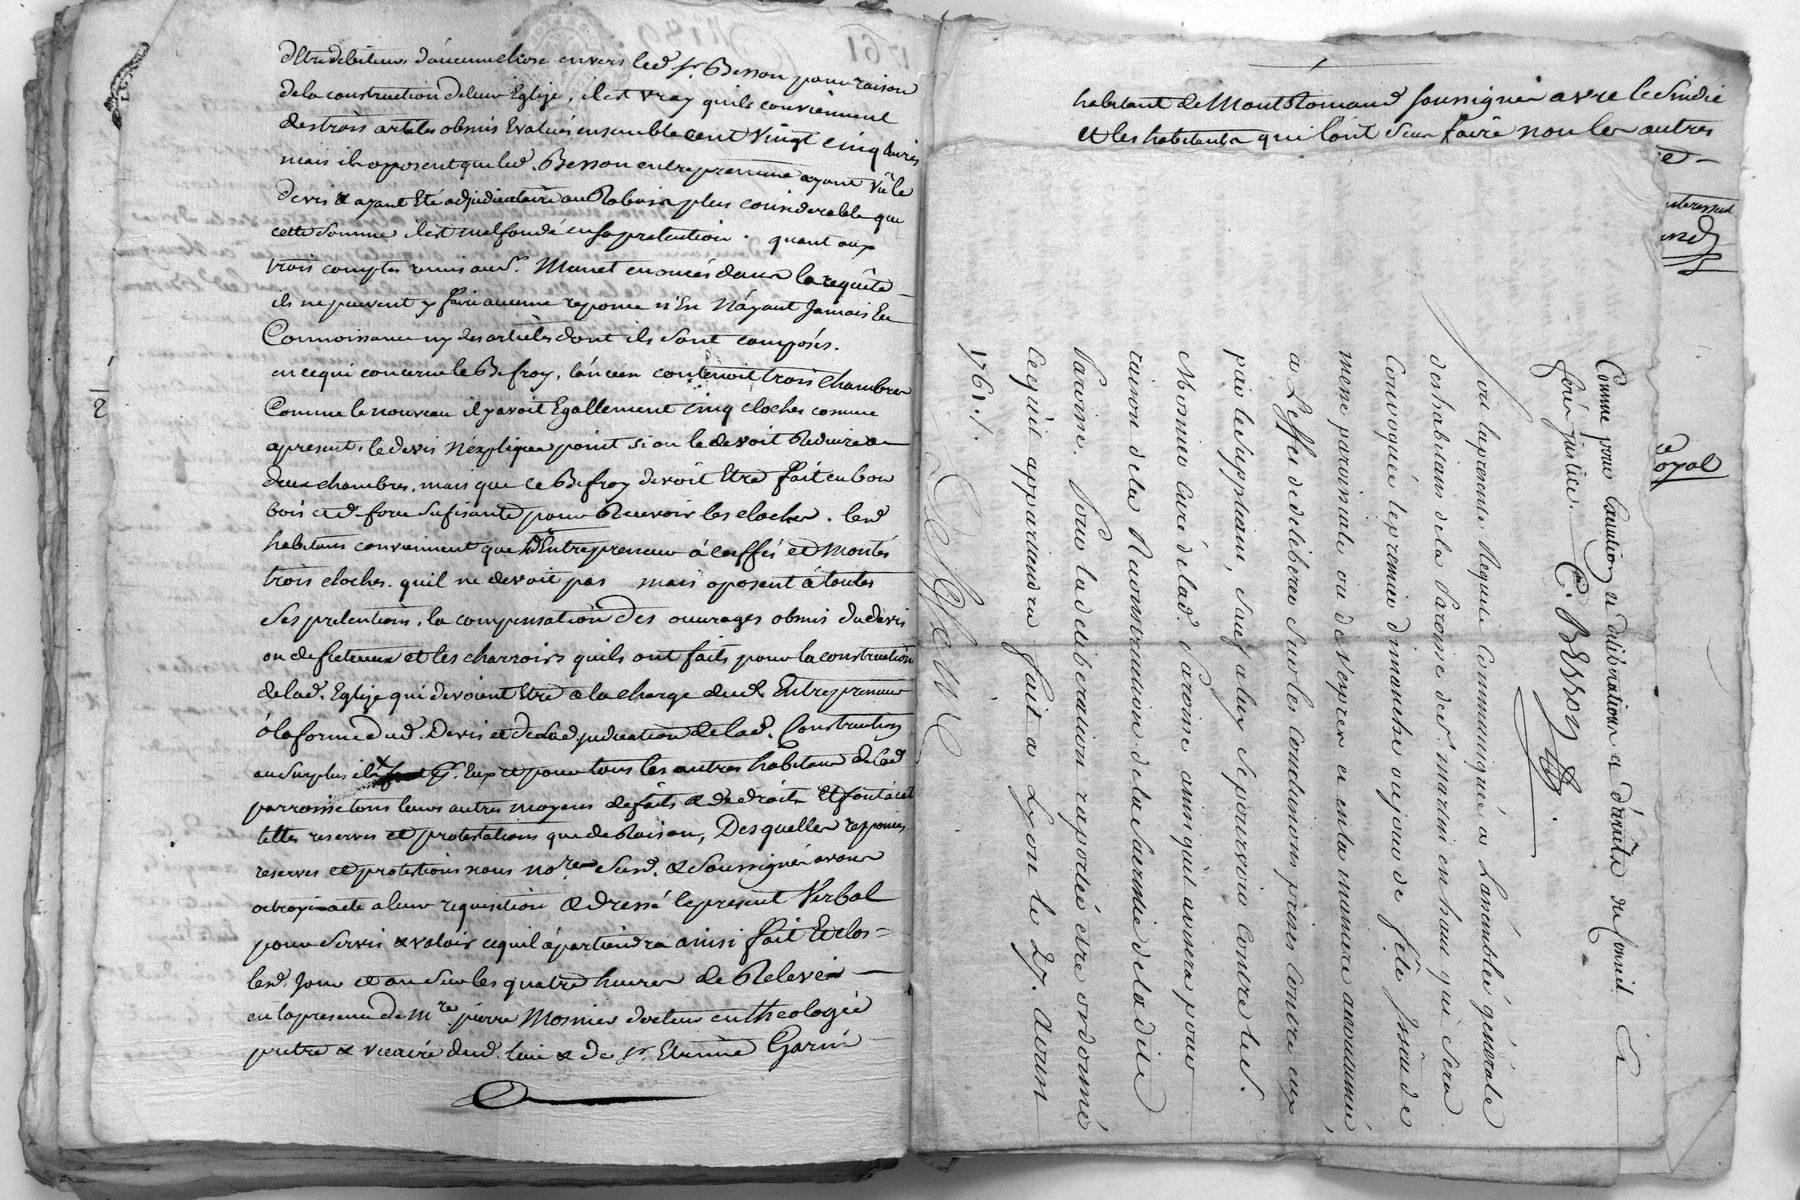 d'Etre debiteurs d'aucune chose envers led. Sr. Besson pour raison
de la construction de leur Eglize, il est vray quils conviennent
des trois articles obmis Evalués ensemble cent Vingt cinq livres
mais ils oposent que led. Besson entrepreneur ayant vû le
devis & ayant Eté adjudicataire au Rabais plus considerable que
cette somme il est mal fondé en sa pretention. quant aux
trois comptes remis aud. Sr. Munet enoncés dans la requête
ils ne peuvent y faire aucune reponce n'En N'ayant Jamais Eu
Connoissance ny des articles dont ils sont composés.
en ce qui concerne le Befroy, l'ancien contenoit trois chambres
Comme le nouveau il y avoit Egallement cinq cloches comme
apresent, le devis N'explique point si on le devoit Reduire a
deux chambres, mais que ce Befroy devoit Etre fait en bon
bois et d. force sufisante pour Recevoir les cloches. lesd.
habitans conviennent que l'Entrepreneur á coeffés et Montés
trois cloches. quil ne devoit pas mais oposent á toutes
Ses pretentions, la compensation Des ouvrages obmis du devis
ou defectueux et les charrois quils ont faits pour la construction
de lad. Eglize qui devoient Etre a la charge dud. Entrepreneur
á la forme dud. Devis et de l'adjudication de lad. Construction
au Surplus ils Eux et pour tous les autres habitans de lad.
parroisse tous leurs autres moyens de faits & de droits Et font
telles reserves et protestations que de Raison, Desquelles reponces
reserves et protestions nous no.re Susd. & Soussigné avons
octroyé acte a leur requisition & dressé le present Verbal
pour Servir & valoir ce quil ápartiendra ainsi fait Et clos
lesd. Jour et an Sur les quatre heures de Relevée
en la presence de M.re pierre Mosnier docteur en theologie
pretre & vicaire dud. lieu & de Sr. Etienne Garin
1761
habitant de Montromand soussignés avec le Sindic
et les habitants qui l'ont sceu faire non les autres
oyal
Comme pour Caution et deliberation et d'arrêté de Conseil
soit justice. C. BESSON
Soit la presente Requete Communiquée a L'assemblée générale
des habitans de la Paroisse de St. martin en haut qui sera
Convoquée le premier dimanche ou jour de fête Issue de
messe paroissiale ou de Vespres et en la maniere accoutumée,
a L'effet de deliberer sur les Conclusions prises Contre eux
par le Suppliant, sauf a luy se pourvoir Contre led.
Mosnier Curé de lad. Paroisse ainsi qu'il avisera pour
raison de la Reconstruction de la Sacristie de la dite
Paroisse. Pour la deliberation raportée etre ordonné
ce qu'il appartiendra fait a Lyon le 27. aoust
1761./.